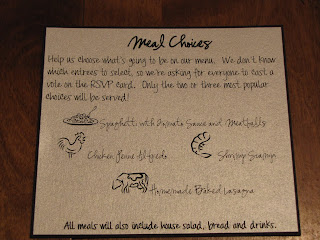 Meal Choices
Help us choose what's going to be on our menu. We don't know
which entrees to select, so we're asking for everyone to cast a
vote on the RSVP card. Only the two or three most popular
choices will be served!
Spaghetti with Tomato Sauce and Meatballs
Chicken Penne Alfredo
Shrimp Scampi
Homemade Baked Lasagna
All meals will also include house salad, bread and drinks.